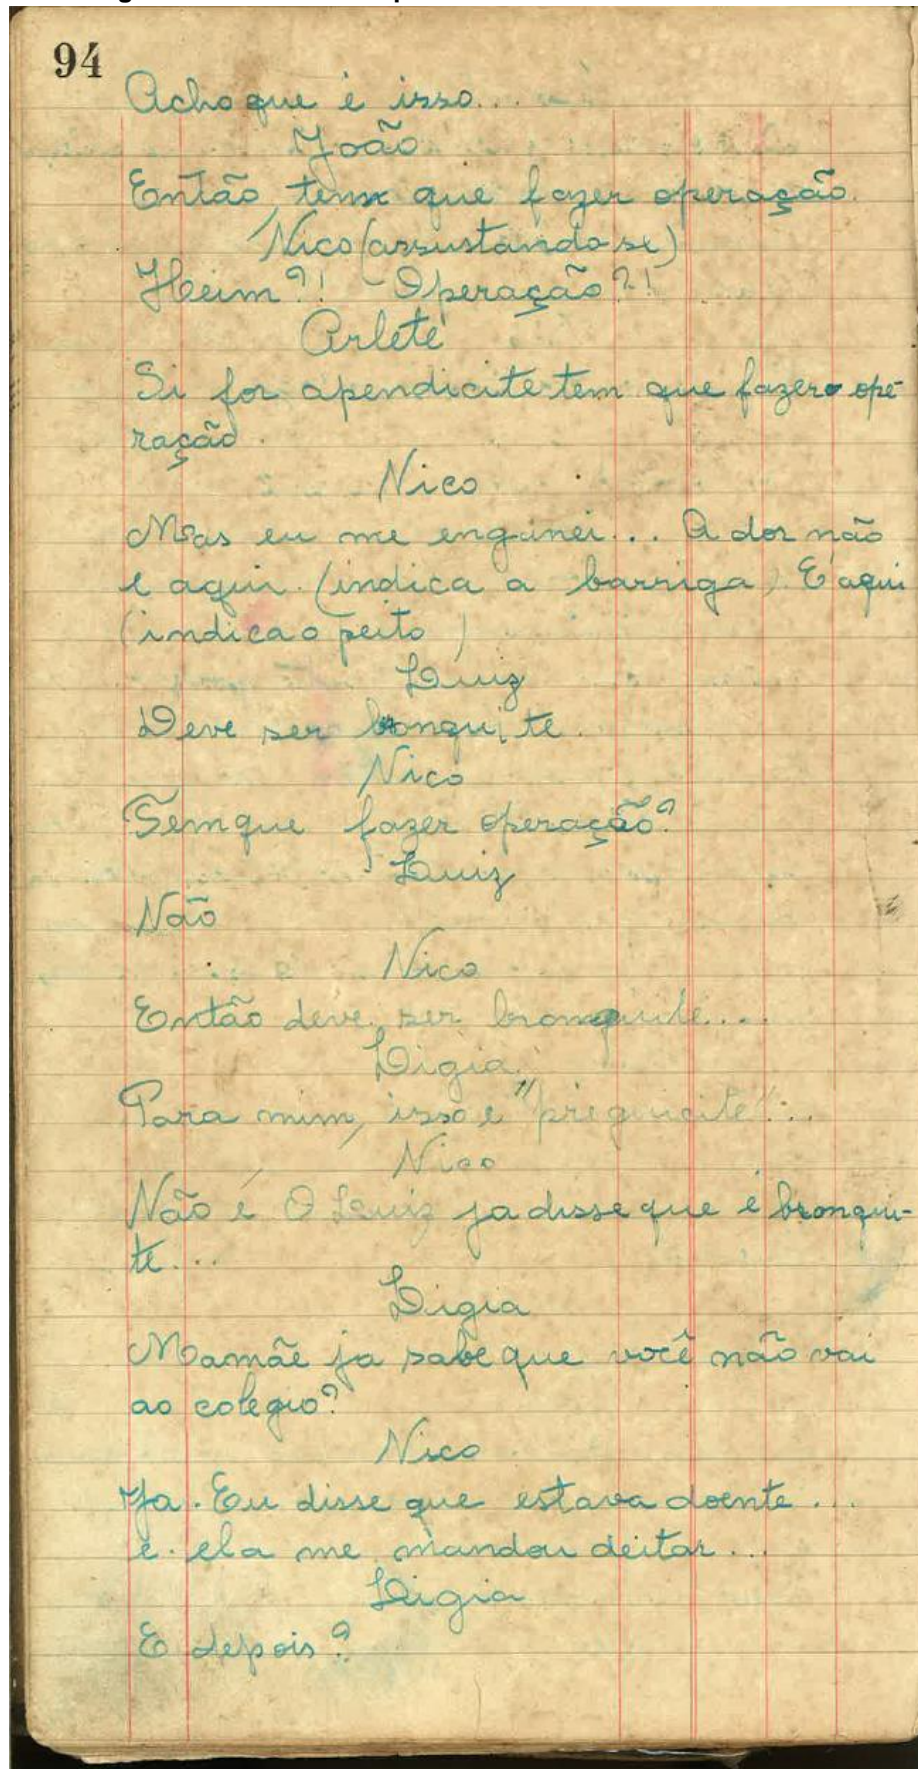 94
Acho que é isso...
João
Então, tem que fazer operação.
Nico (assustando se)
Heim?! - Operação?!
Arlete
Si for apendicite tem que fazer ope-
ração.
Nico
Mas eu me enganei... A dor não
é aqui. (indica a barriga) E' aqui
(indica o peito)
Luiz
Deve ser bronquite.
Nico
Tem que fazer operação?
Luiz
Não
Nico
Então deve ser bronquite...
Ligia
Para mim, isso é "preguicite"...
Nico
Não é O Luiz ja disse que é bronqui-
te...
Ligia
Mamãe ja sabe que você não vai
ao colegio?
Nico
Ja. Eu disse que estava doente...
e ela me mandou deitar...
Ligia
E depois?